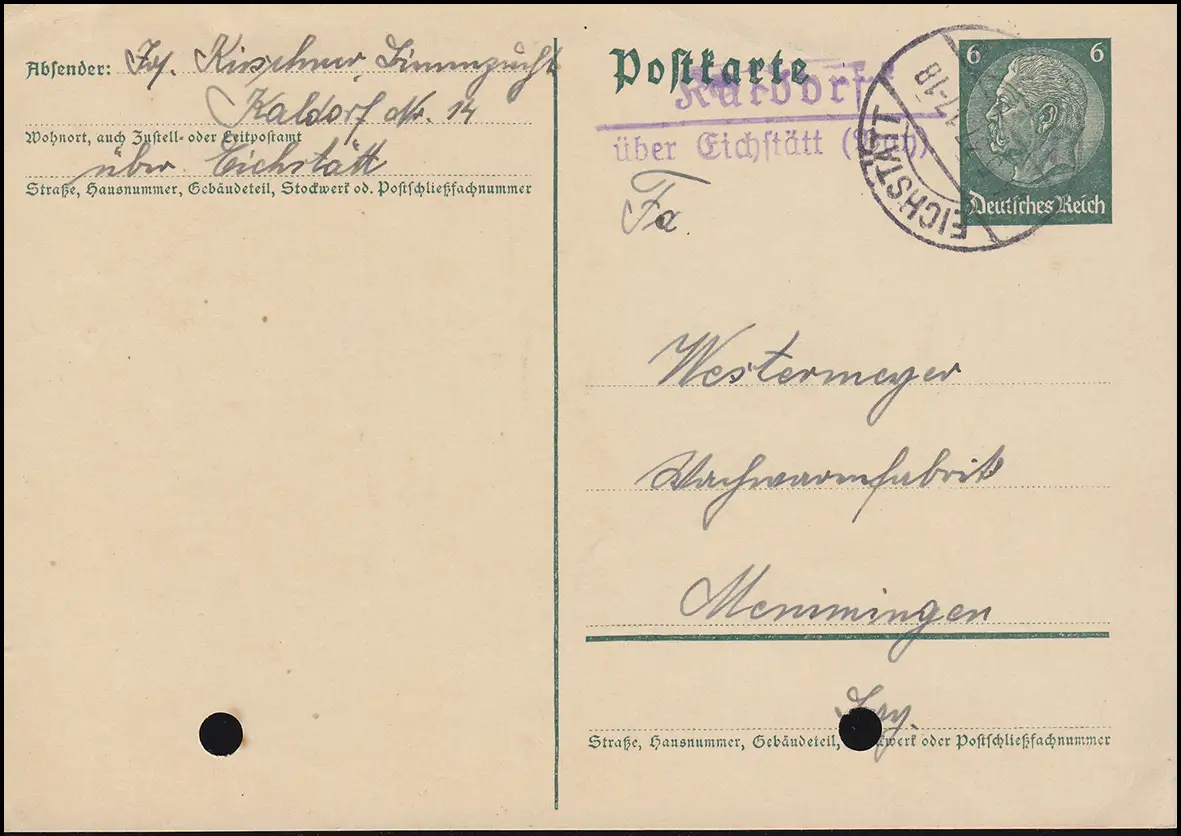 Absender: Jos. Kirschner,
Kaldorf Nr. 14
Wohnort, auch Zustell- oder Leitpostamt
über Eichstätt
Straße, Hausnummer, Gebäudeteil, Stockwerk od. Postschließfachnummer
Postkarte
Kaldorf
über Eichstätt
EICHSTÄTT
17-18
6 6
Deutsches Reich
Fa.
Westermeyer
Wachwarenfabrik
Memmingen
Bay.
Straße, Hausnummer, Gebäudeteil, Stockwerk oder Postschließfachnummer